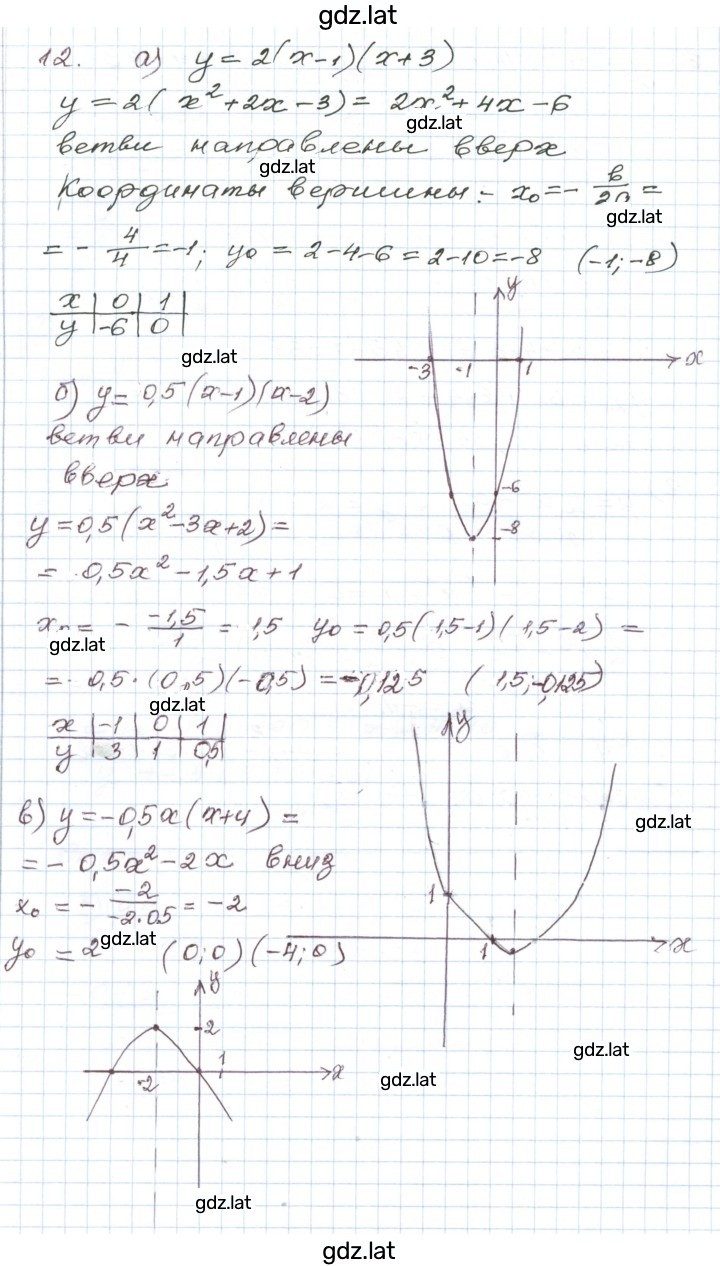 gdz.lat
12. а) y = 2(x-1)(x+3)
y = 2(x²+2x-3) = 2x²+4x-6
gdz.lat
ветви направлены вверх
gdz.lat
Координаты вершины:- x₀ = - в/2a =
gdz.lat
= - 4/4 = -1; y₀ = 2-4-6 = 2-10 = -8 (-1; -8)
x | 0 | 1 |
y | -6 | 0 |
y
x
-3 -1 1
-6
-8
gdz.lat
б) y = 0,5(x-1)(x-2)
ветви направлены
вверх
y = 0,5(x²-3x+2) =
= 0,5x²-1,5x+1
x₀ = - -1,5/1 = 1,5 y₀ = 0,5(1,5-1)(1,5-2) =
gdz.lat
= 0,5·(0,5)(-0,5) = -0,125 (1,5; -0,125)
gdz.lat
x | -1 | 0 | 1 |
y | 3 | 1 | 0,5 |
y
1
1
x
в) y = -0,5x(x+4) =
gdz.lat
= - 0,5x²-2x вниз
x₀ = - -2/-2·0.5 = -2
gdz.lat
y₀ = 2 (0;0) (-4;0)
y
2
1
-2
x
gdz.lat
gdz.lat
gdz.lat
gdz.lat